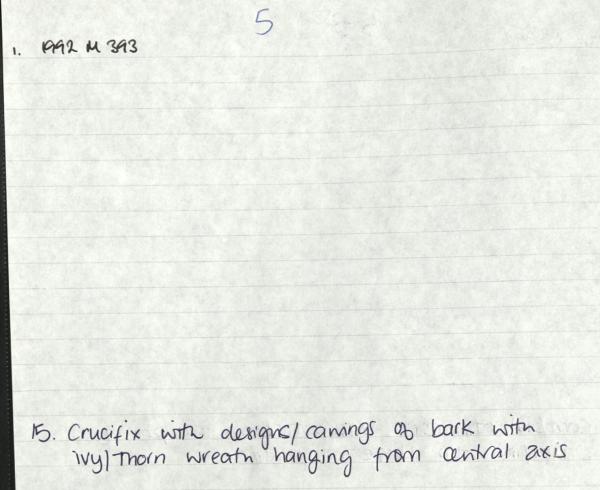 5
1. 1992 M 393
15. Crucifix with designs/carvings of bark with
ivy/Thorn wreath hanging from central axis